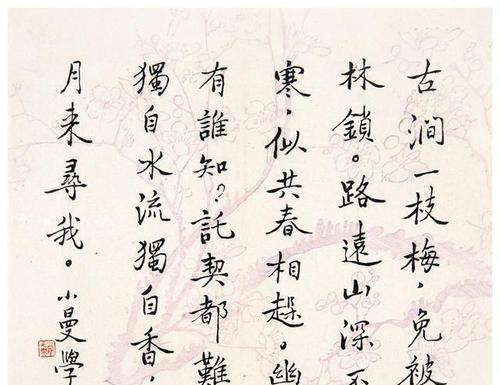 古澗一枝梅，免被
林鎖。路遠山深不
寒，似共春相趓。幽
有誰知？託契都難
獨自水流獨自香，
月来尋我。小曼學